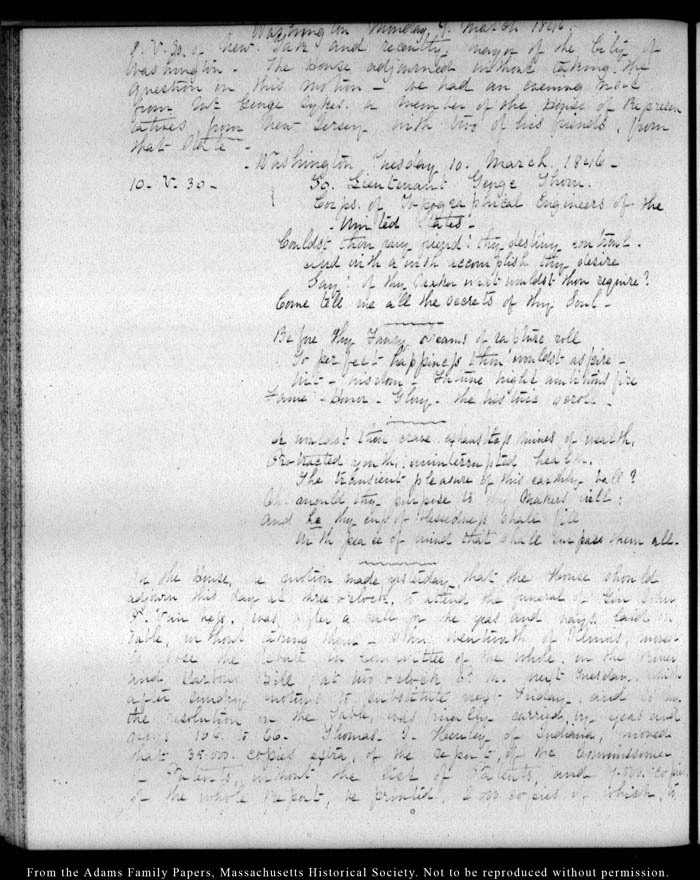 Washington Monday 9. March 1846.
8. V. 30. of New York and recently mayor of the City of
Washington - The House adjourned without taking the
question on this motion - we had an evening
from Mr George Sykes. a member of the House of Represen
tatives, from New Jersey, with two of his friends, from
that State -
- Washington, Tuesday 10. March. 1846 -
10. V. 30 - To Lieutenant George Thom.
Corps. of Topographical Engineers of the
- United States -
Couldst thou my friend! thy destiny control.
And with a wish accomplish thy desire
Say! of thy Maker what wouldst thou require?
Come tell me all the secrets of thy Soul -
Before thy Fancy dreams of rapture roll
To perfect happiness thou wouldst aspire -
Wit - wisdom - Fortune might ambitions fire
Fame - Honor - Glory - the historic scroll -
Or wouldst thou crave exhaustless mines of wealth,
Protracted youth, uninterrupted health.
The transient pleasure of this earthly ball?
Oh. mould thy purpose to thy Makers will;
And He thy cup of blessedness shall fill
With peace of mind that shall surpass them all -
In the House, the motion made yesterday, that the House should
adjourn this day at three o'clock, to attend the funeral of Gen John
P. Van Ness, was, after a call for the yeas and nays, laid on
table, without taking them - John Wentworth of Illinois, moved
to close the debate in committee of the whole, on the River
and Harbour Bill, at two o'clock P. M. next Tuesday, which
after sundry motions to substitute next Friday, and to lay
the resolution on the Table, was finally carried, by yeas and
nays 106 to 66. Thomas J. Henley of Indiana, moved
that 35.000. copies extra, of the report, of the Commissioner
of Patents, without the list of Patents, and copies
of the whole Report, be printed, 2000 copies of which, to
From the Adams Family Papers, Massachusetts Historical Society. Not to be reproduced without permission.